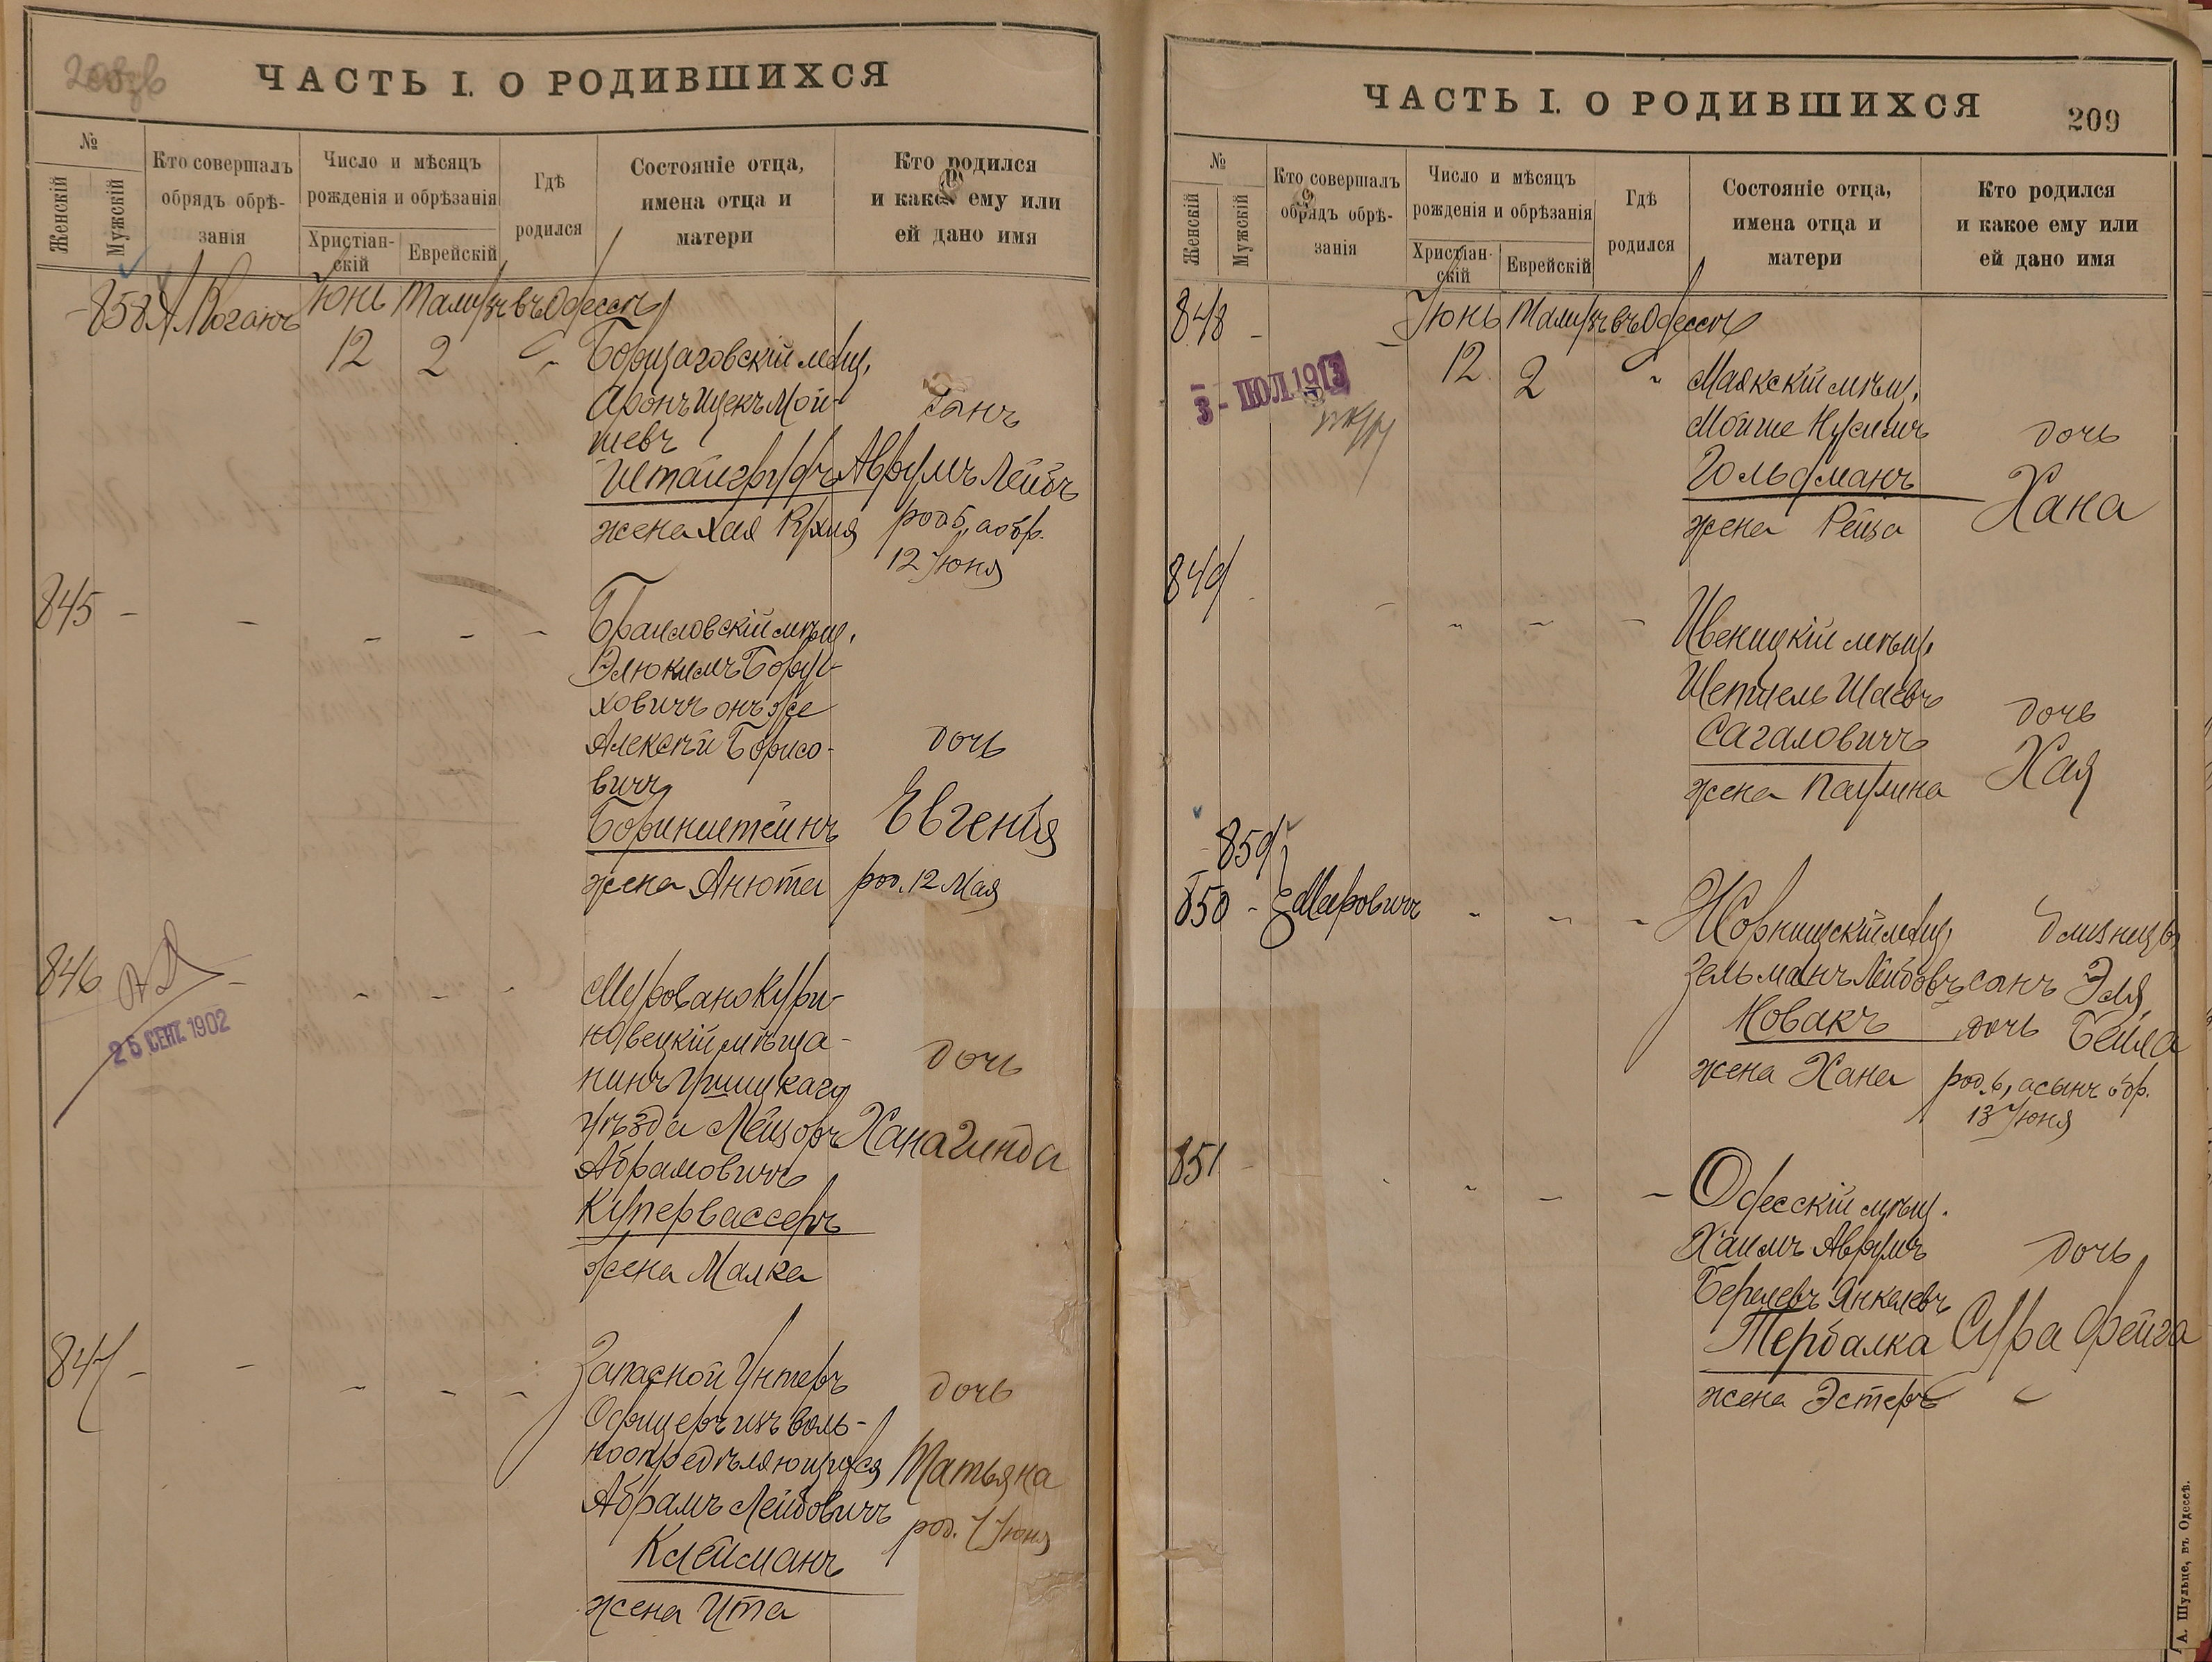 ЧАСТЬ I. О РОДИВШИХСЯ
№
Женскій
Мужскій
Кто совершалъ
обрядъ обрѣ-
занія
Число и мѣсяцъ
рожденія и обрѣзанія
Христіан-
скій
Еврейскій
Гдѣ
родился
Состояніе отца,
имена отца и
матери
Кто родился
и какое ему или
ей дано имя
858 А Коганъ Іюнь Тамузъ въ Одессѣ
12 2
мѣщ.
Аронъ Ицекъ Мой-
шевъ
сынъ
Штайгруфъ Аврумъ Лейбъ
жена Хая Рухля род 5, а обр.
12 Іюня
845 -
Браиловскій мѣщ.
Элюкимъ Бору-
ховичъ онъ же
Алексѣй Борисо-
вичъ
дочь
Боринштейнъ Евгенія
жена Анюта род. 12 Мая
846
25 СЕНТ. 1902
Мурованокури-
ловецкій мѣща-
нинъ Ушицкаго
дочь
уѣзда Лейзоръ Хана Гинда
Абрамовичъ
Купервассеръ
жена Малка
847 -
Запасной Унтеръ
Офицеръ изъ воль-
ноопредѣляющихся
дочь
Татьяна
Абрамъ Лейбовичъ
род. 7 Іюня
Клейманъ
жена Ита
ЧАСТЬ I. О РОДИВШИХСЯ
209
№
Женскій
Мужскій
Кто совершалъ
обрядъ обрѣ-
занія
Число и мѣсяцъ
рожденія и обрѣзанія
Христіан-
скій
Еврейскій
Гдѣ
родился
Состояніе отца,
имена отца и
матери
Кто родился
и какое ему или
ей дано имя
848 - Іюнь Тамузъ въ Одессѣ
12 2
3 - ІЮЛ. 1913
Маякскій мѣщ.
Мойше Нусимъ
дочь
Гольдманъ
Хана
жена Рейза
849
Ивеницкій мѣщ.
Шепшель Шаевъ
дочь
Сагаловичъ
Хая
жена Паулина
859
850 - Меровичъ
Жорнищскій мѣщ. близнецы
Зельманъ Лейбовъ сынъ Эля
Новакъ дочь Бейла
жена Хана род. 6, а сынъ обр.
13 Іюня
851
Одесскій мѣщ.
Хаимъ Аврумъ
дочь
Берелевъ Янкелевъ
Тербалка Сура Фейга
жена Эстеръ
А. Шульце, въ Одессѣ.